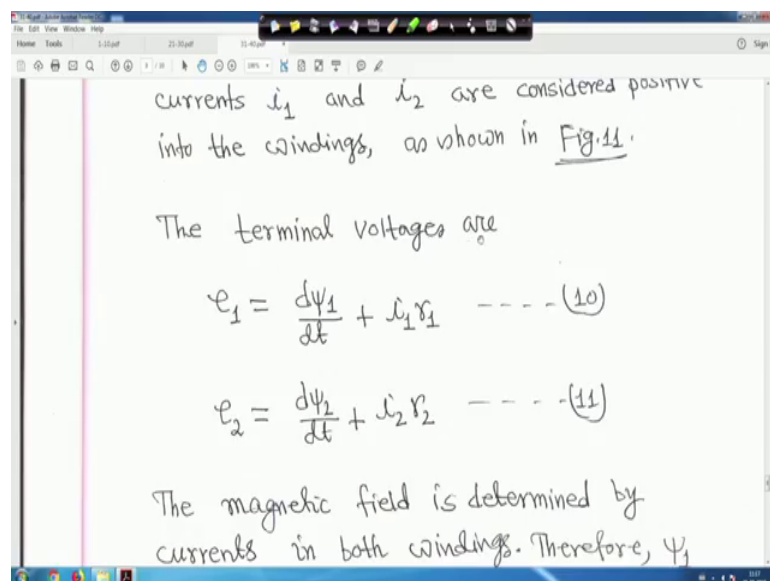 31-40.pdf - Adobe Acrobat Reader DC
File Edit View Window Help
Home Tools 1-10.pdf 21-30.pdf 31-40.pdf × Sign
currents i₁ and i₂ are considered positive
into the windings, as shown in Fig.11.
The terminal voltages are
e₁ = dψ₁/dt + i₁r₁ ----(10)
e₂ = dψ₂/dt + i₂r₂ ----(11)
The magnetic field is determined by
currents in both windings. Therefore, ψ₁